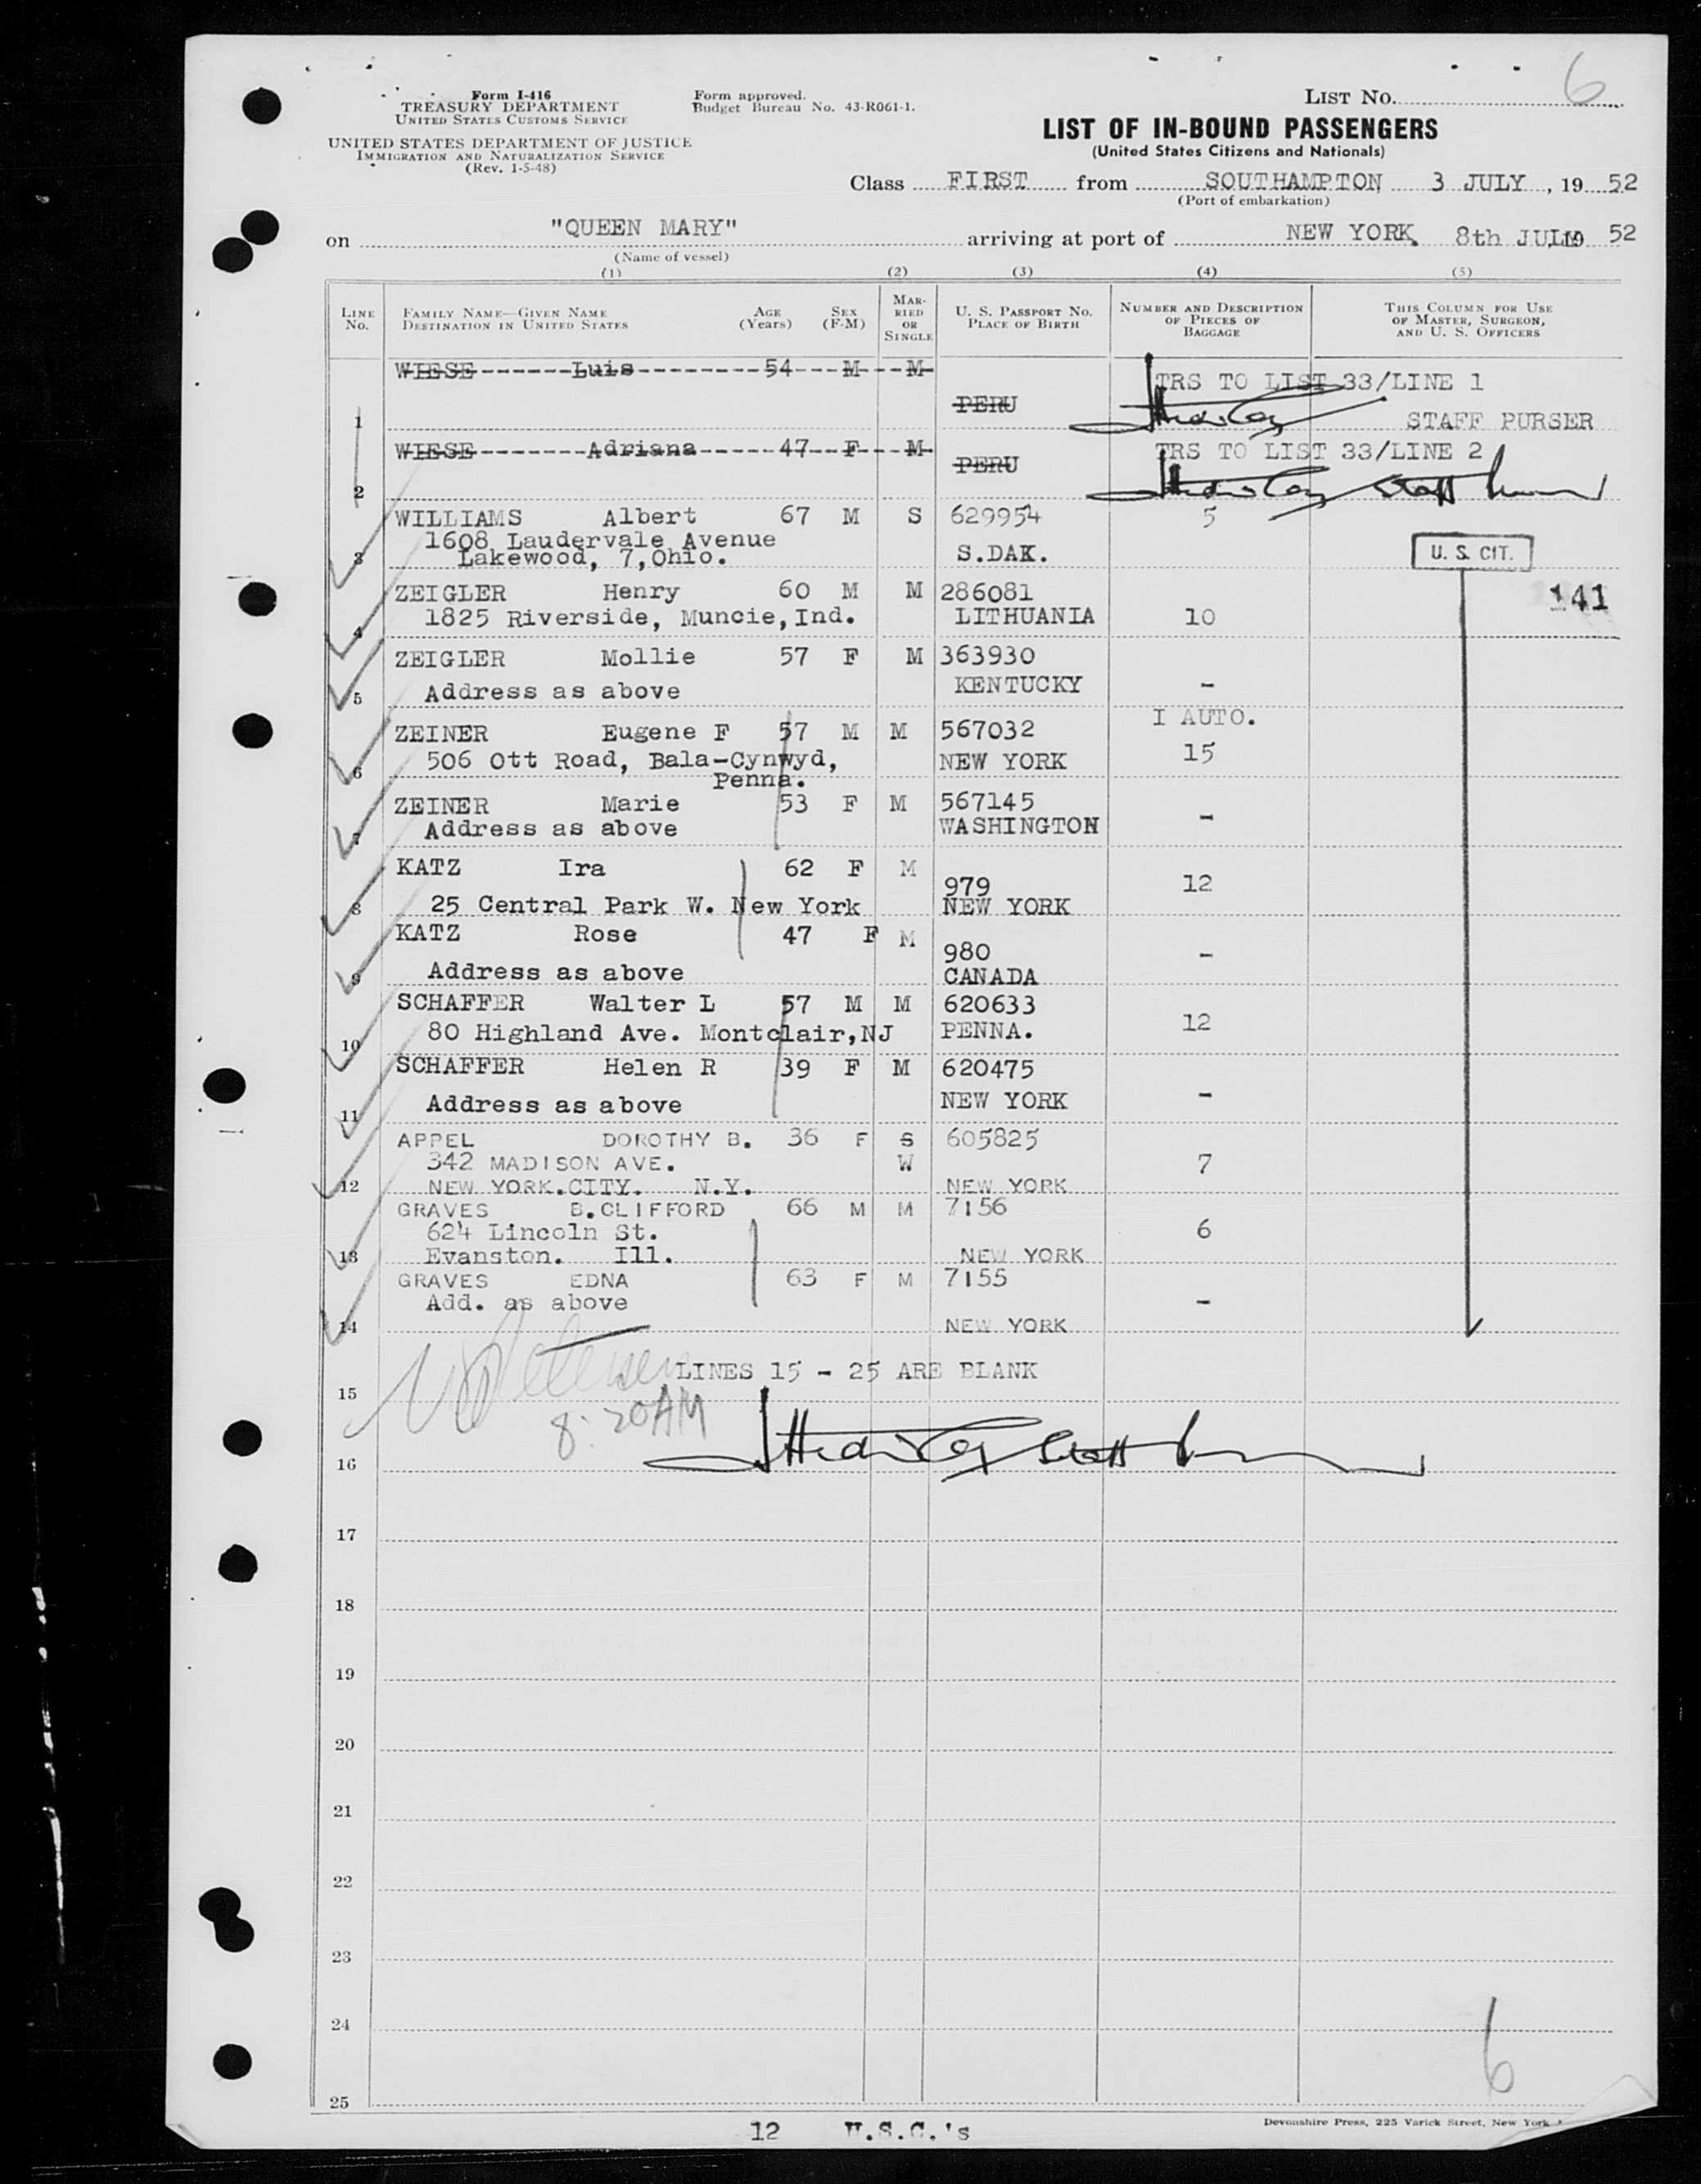 6
Form I-416
TREASURY DEPARTMENT
UNITED STATES CUSTOMS SERVICE
UNITED STATES DEPARTMENT OF JUSTICE
IMMIGRATION AND NATURALIZATION SERVICE
(Rev. 1-5-48)
Form approved.
Budget Bureau No. 43-R061-1.
LIST NO.
LIST OF IN-BOUND PASSENGERS
(United States Citizens and Nationals)
Class FIRST from SOUTHAMPTON 3 JULY, 1952
(Port of embarkation)
on "QUEEN MARY" arriving at port of NEW YORK. 8th JULY 19 52
(Name of vessel)
(1) (2) (3) (4) (5)
LINE No. FAMILY NAME—GIVEN NAME DESTINATION IN UNITED STATES AGE (Years) SEX (F-M) MARRIED OR SINGLE U. S. PASSPORT NO. PLACE OF BIRTH NUMBER AND DESCRIPTION OF PIECES OF BAGGAGE THIS COLUMN FOR USE OF MASTER, SURGEON, AND U. S. OFFICERS
WIESE------Luis--------54---M---M-
TRS TO LIST 33/LINE 1
PERU
1 STAFF PURSER
WIESE-------Adriana-----47--F---M-
TRS TO LIST 33/LINE 2
PERU
2
WILLIAMS Albert 67 M S 629954 5
1608 Laudervale Avenue
3 Lakewood, 7,Ohio. S.DAK. U. S. CIT.
ZEIGLER Henry 60 M M 286081 141
4 1825 Riverside, Muncie,Ind. LITHUANIA 10
ZEIGLER Mollie 57 F M 363930
5 Address as above KENTUCKY -
I AUTO.
ZEINER Eugene F 57 M M 567032
6 506 Ott Road, Bala-Cynwyd, NEW YORK 15
Penna.
ZEINER Marie 53 F M 567145
7 Address as above WASHINGTON -
KATZ Ira 62 F M
979 12
8 25 Central Park W. New York NEW YORK
KATZ Rose 47 F M
980 -
9 Address as above CANADA
SCHAFFER Walter L 57 M M 620633
10 80 Highland Ave. Montclair,NJ PENNA. 12
SCHAFFER Helen R 39 F M 620475
11 Address as above NEW YORK -
APPEL DOROTHY B. 36 F S 605825
342 MADISON AVE. W 7
12 NEW YORK.CITY. N.Y. NEW YORK
GRAVES B.CLIFFORD 66 M M 7156
624 Lincoln St. 6
13 Evanston. Ill. NEW YORK
GRAVES EDNA 63 F M 7155
Add. as above -
14 NEW YORK
LINES 15 - 25 ARE BLANK
15
8:20AM
16
17
18
19
20
21
22
23
24
6
25
Devonshire Press, 225 Varick Street, New York
12 U.S.C.'s